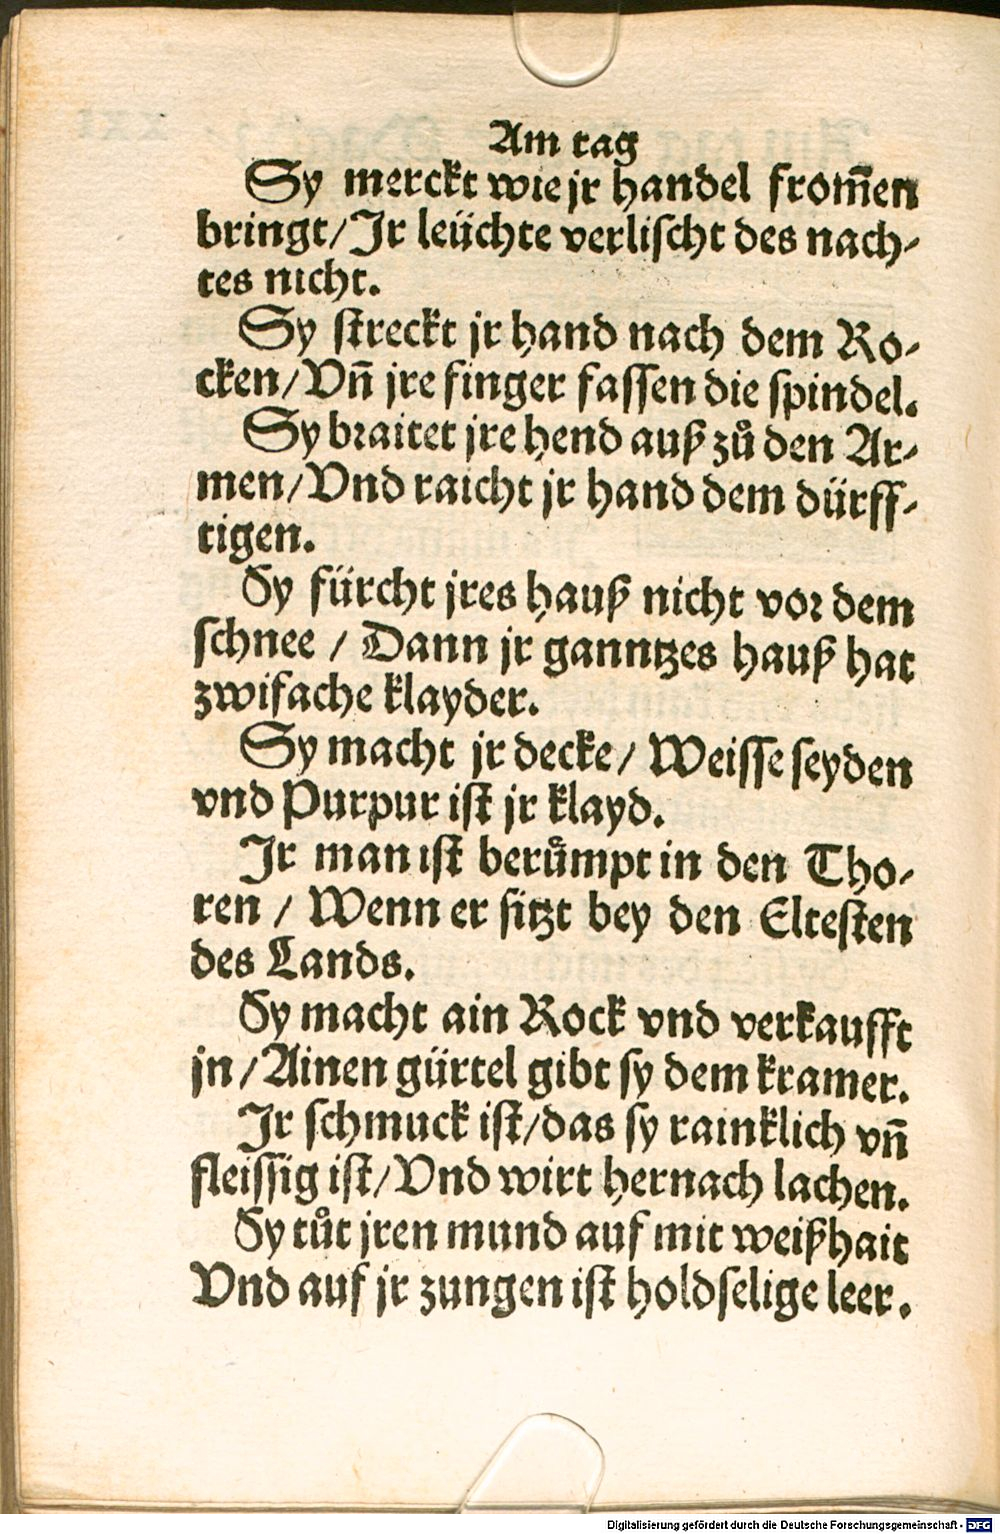 Am tag
Sy merckt wie jr handel from̄en
bringt/Jr leüchte verlischt des nach⸗
tes nicht.
Sy streckt jr hand nach dem Ro⸗
cken/Vn̄ jre finger fassen die spindel.
Sy braitet jre hend auß zů den Ar⸗
men/Vnd raicht jr hand dem dürff⸗
tigen.
Sy fürcht jres hauß nicht vor dem
schnee / Dann jr ganntzes hauß hat
zwifache klayder.
Sy macht jr decke/ Weisse seyden
vnd Purpur ist jr klayd.
Jr man ist berůmpt in den Tho⸗
ren / Wenn er sitzt bey den Eltesten
des Lands.
Sy macht ain Rock vnd verkaufft
jn /Ainen gürtel gibt sy dem kramer.
Jr schmuck ist/das sy rainklich vn̄
fleissig ist/Vnd wirt hernach lachen.
Sy tůt jren mund auf mit weißhait
Vnd auf jr zungen ist holdselige leer.
Digitalisierung gefördert durch die Deutsche Forschungsgemeinschaft - DFG